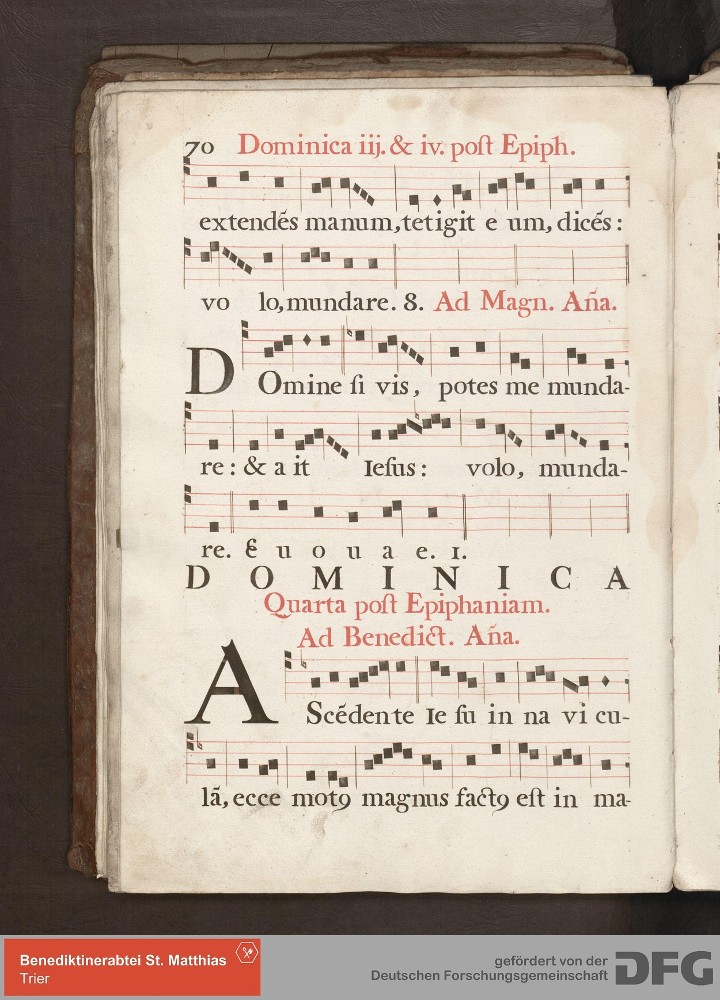 70 Dominica iij. & iv. poſt Epiph.
extendẽs manum, tetigit e um, dicẽs:
vo lo, mundare. 8. Ad Magn. Aña.
DOmine ſi vis, potes me munda-
re: & a it Ieſus: volo, munda-
re. E u o u a e. 1.
DOMINICA
Quarta poſt Epiphaniam.
Ad Benedict. Aña.
AScẽdente Ie ſu in na vi cu-
lã, ecce motꝯ magnus factꝯ eſt in ma-
Benediktinerabtei St. Matthias
Trier
gefördert von der
Deutschen Forschungsgemeinschaft DFG